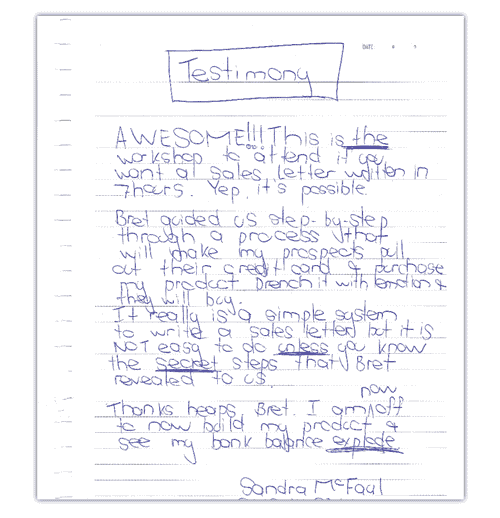 DATE
Testimony
AWESOME!!! This is the
workshop to attend if you
want a sales letter written in
7hours. Yep, it's possible.
Bret guided us step-by-step
through a process that
will make my prospects pull
out their credit card & purchase
my product. Drench it with emotion &
they will buy.
It really is a simple system
to write a sales letter but it is
NOT easy to do unless you know
the secret steps that Bret
revealed to us.
now
Thanks heaps, Bret. I am off
to now build my product &
see my bank balance explode
Sandra McFaul